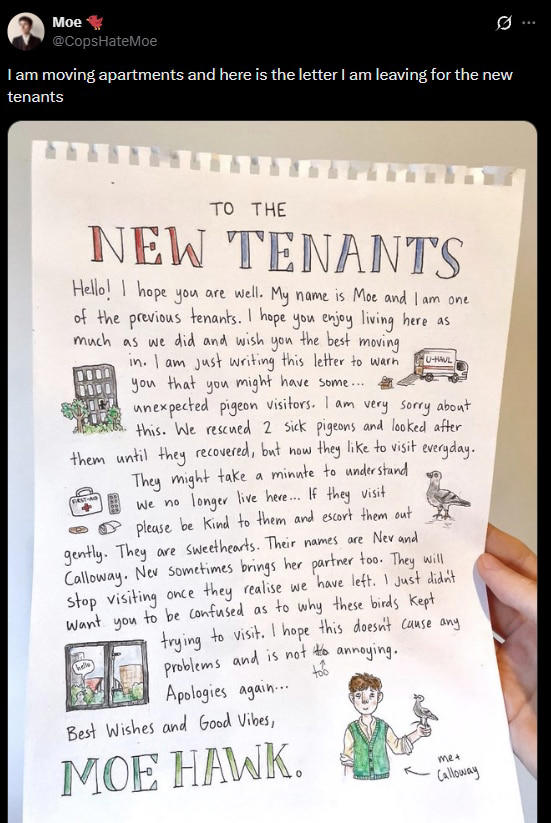 Moe
@CopsHateMoe
I am moving apartments and here is the letter I am leaving for the new
tenants
TO THE
NEW TENANTS
Hello! I hope you are well. My name is Moe and I am one
of the previous tenants. I hope you enjoy living here as
much as we did and wish you the best moving
in. I am just writing this letter to warn
U-HAUL
you that you might have some...
unexpected pigeon visitors. I am very sorry about
this. We rescued 2 sick pigeons and looked after
them until they recovered, but now they like to visit everyday.
They might take a minute to understand
FIRST-AID
we no longer live here... If they visit
please be kind to them and escort them out
gently. They are sweethearts. Their names are Nev and
Calloway. Nev sometimes brings her partner too. They will
stop visiting once they realise we have left. I just didn't
want you to be confused as to why these birds kept
trying to visit. I hope this doesn't cause any
hello
problems and is not to annoying.
too
Apologies again...
Best Wishes and Good Vibes,
MOE HAWK.
me +
Calloway